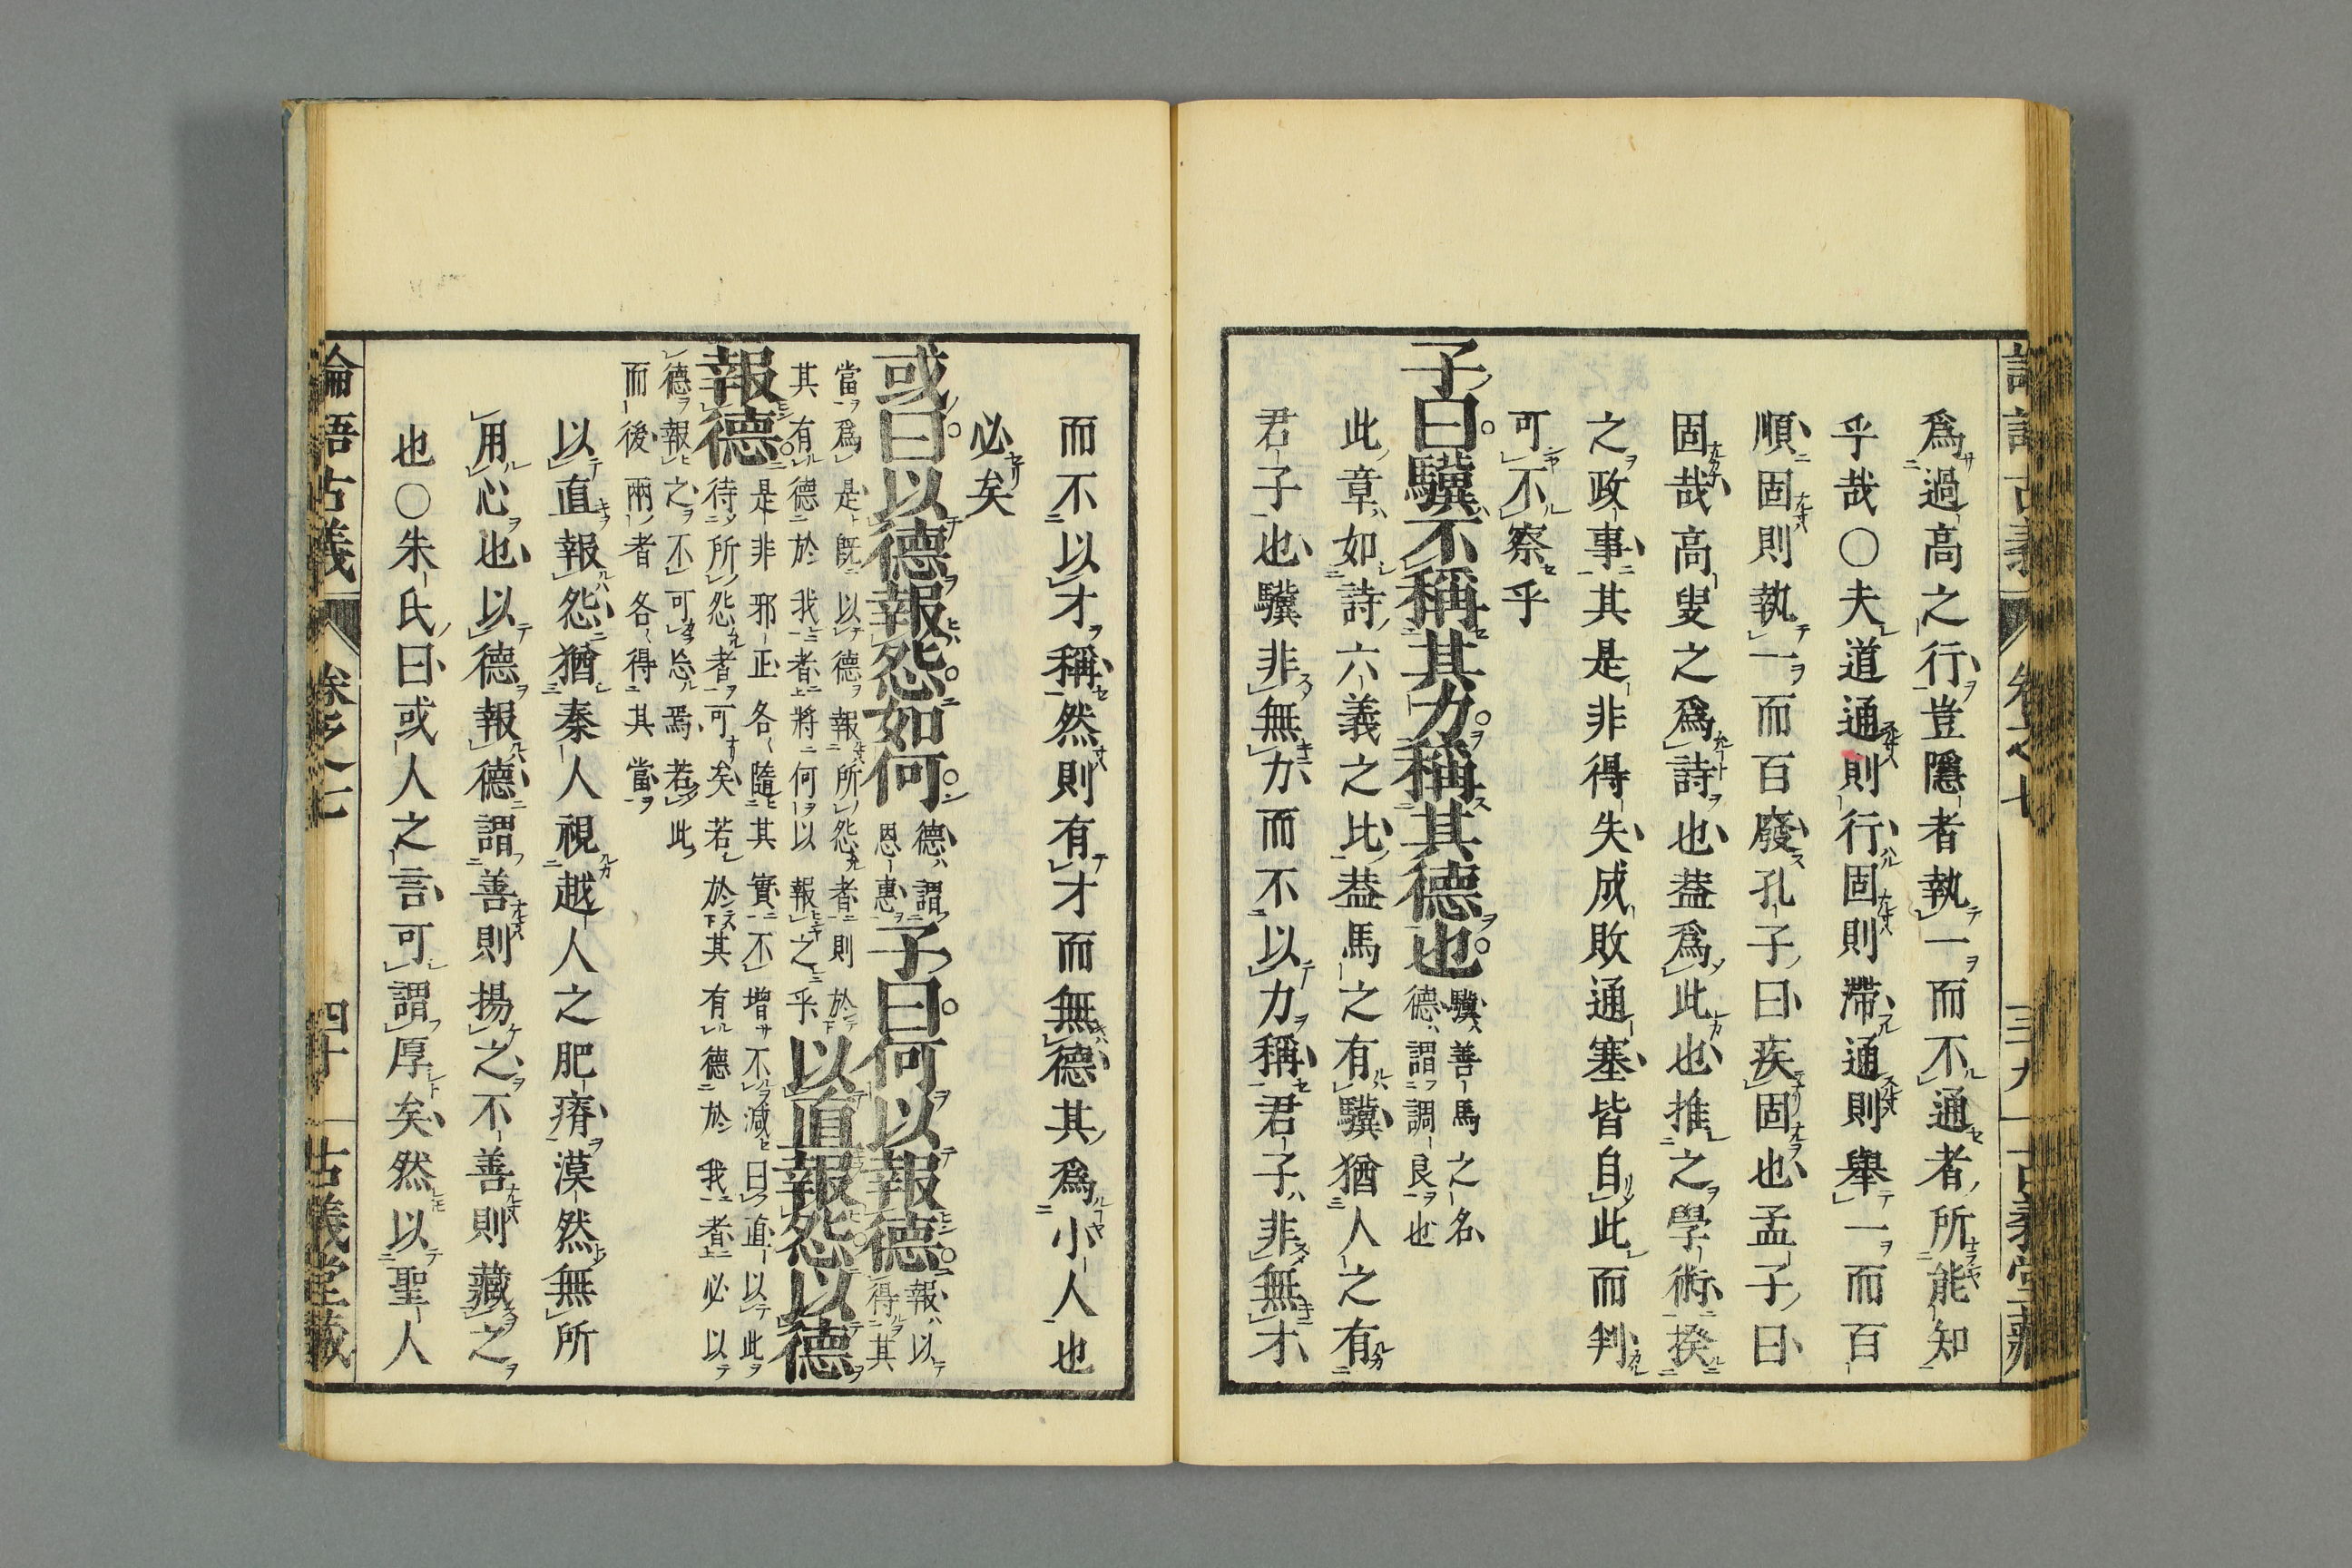 爲過高之行豈隱者執一而不通者所能知
乎哉〇夫道通則行固則滯通則舉一而百
順固則執一而百廢孔子曰疾固也孟子曰
固哉高叟之爲詩也蓋爲此也推之學術揆
之政事其是非得失成敗通塞皆自此而判
可不察乎
子曰驥不稱其力稱其德也
驥善馬之名
德謂調良也
此章如詩六義之比蓋馬之有驥猶人之有
君子也驥非無力而不以力稱君子非無才
卷之七
三十九
古義堂藏
而不以才稱然則有才而無德其爲小人也
必矣
或曰以德報怨如何
德謂
恩惠
子曰何以報德
報以
得其
當爲是既以德報所怨者則於
其有德於我者將何以報之乎
以直報怨以德
報德
是非邪正各隨其實不增不減曰直以此
待所怨者可矣若於其有德於我者必以
德報之不可忘焉若此
而後兩者各得其當
以直報怨猶秦人視越人之肥瘠漠然無所
用心也以德報德謂善則揚之不善則藏之
也〇朱氏曰或人之言可謂厚矣然以聖人
論語古義
卷之七
四十
古義堂藏